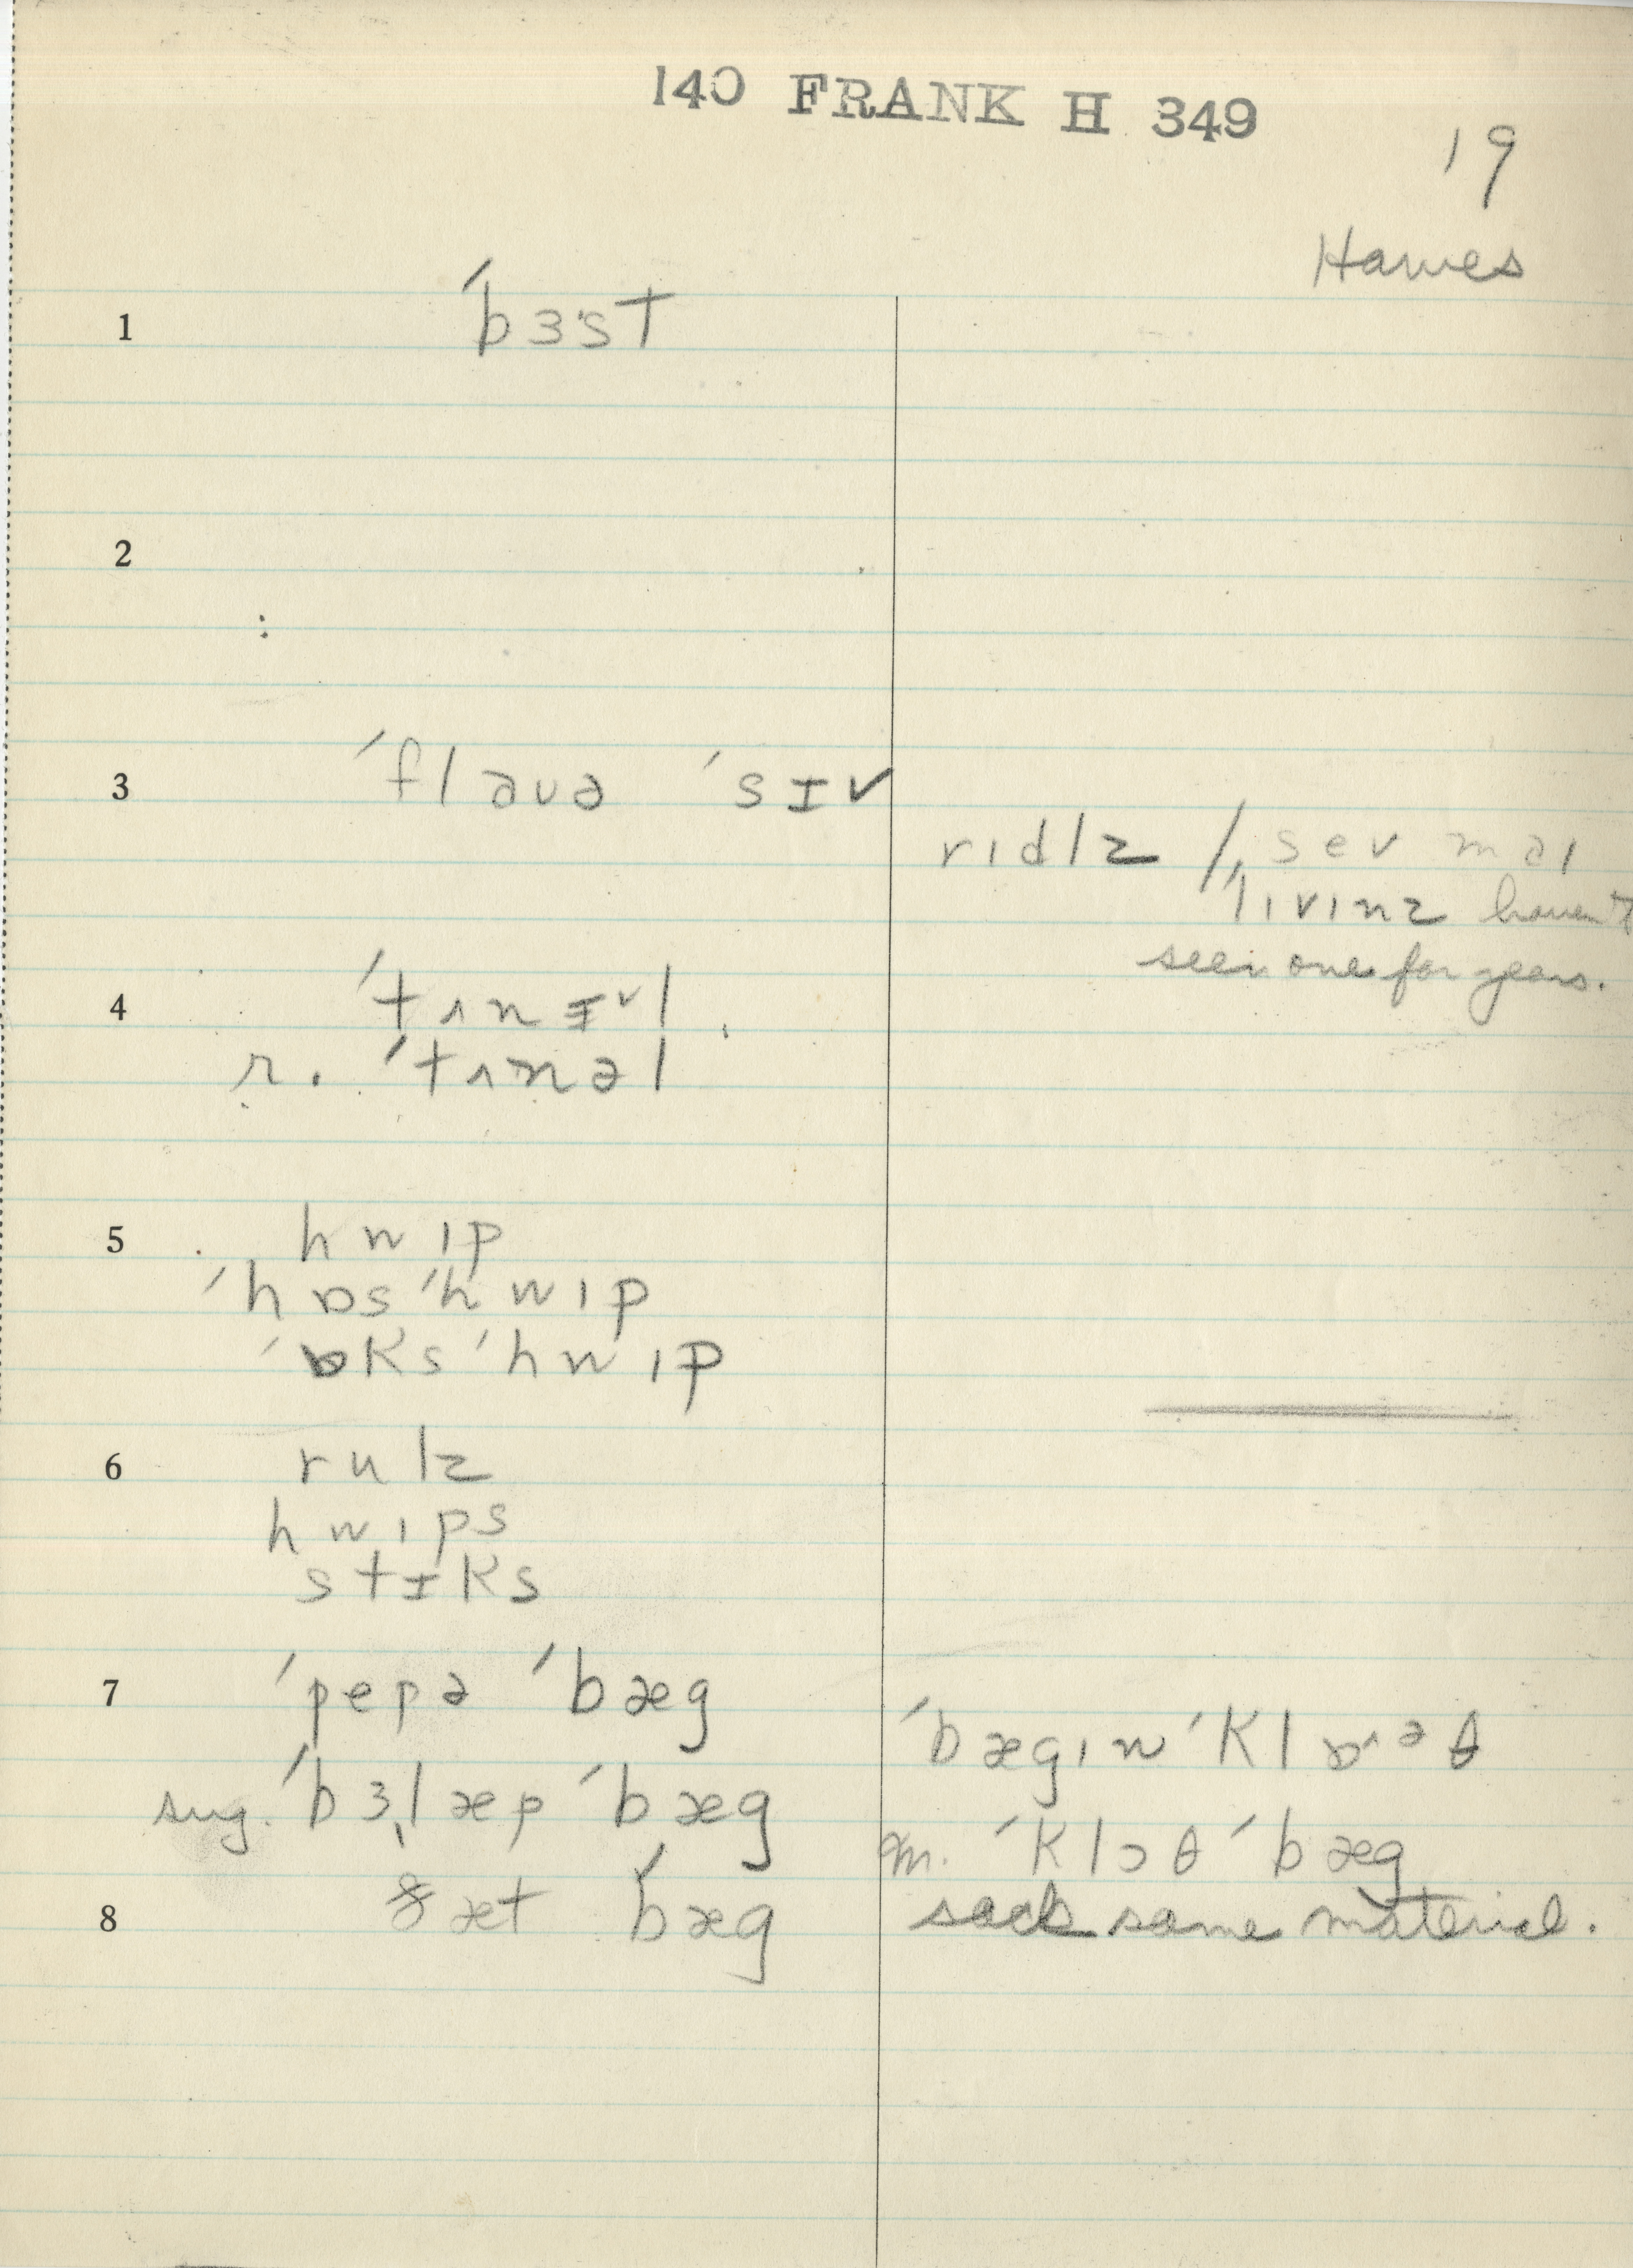 140 FRANK H 349
19
Hawes
1 ˈbɜst
2
3 ˈflauə ˈsɪv
rɪdlz / sev maɪ
ˈlɪvɪnz haven't
seen one for years.
4 ˈtʌnɪ˅l
r. ˈtʌnəl
5 hwɪp
ˈhɒs ˈhwɪp
ˈɒks ˈhwɪp
6 rulz
hwɪps
stɪks
7 ˈpepə ˈbæg
ˈbægɪn ˈklɒ˄əθ
sug. ˈbɜˌlæp ˈbæg
m. ˈklɔθ ˈbæg
8 ðæt ˈbæg
sack same material.